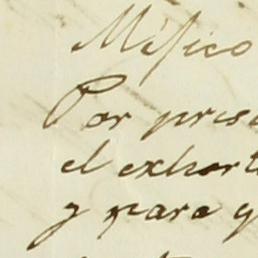 Méjico
Por pres
el exhort
y para q